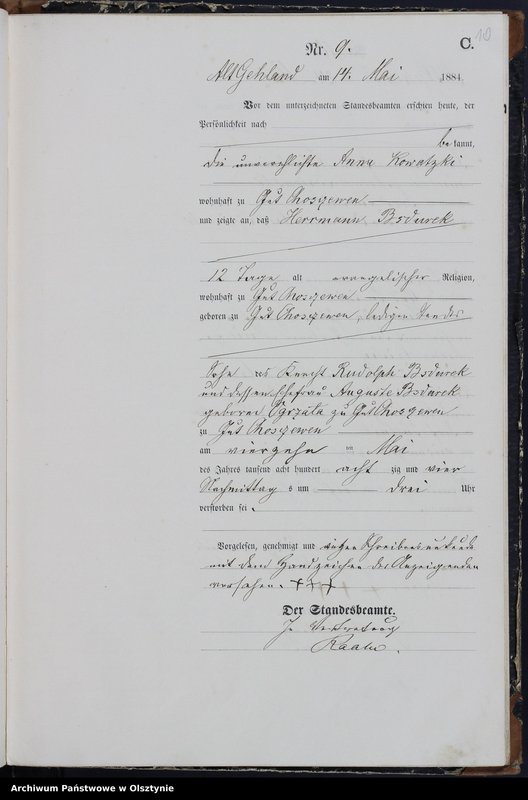 10
Nr. 9.
C.
Alt Gehland am 14. Mai 1884
Vor dem unterzeichneten Standesbeamten erschien heute, der
Persönlichkeit nach
be kannt,
die unverehlichte Anna Kowatzki
wohnhaft zu Gut Choszewen
und zeigte an, daß Herrmann Bsdurek
12 Tage alt evangelischer Religion,
wohnhaft zu Gut Choszewen
geboren zu Gut Choszewen, ledigen Standes
Sohn des Knecht Rudolph Bsdurek
und dessen Ehefrau Auguste Bsdurek
geborne Ogrzala zu Gut Choszewen
zu Gut Choszewen
am vierzehn ten Mai
des Jahres tausend acht hundert acht zig und vier
Nachmittag s um drei Uhr
verstorben sei.
Vorgelesen, genehmigt und wegen Schreibensunkunde
mit dem Handzeichen des Anzeigenden
versehen. +++
Der Standesbeamte.
In Vertretung
Archiwum Państwowe w Olsztynie